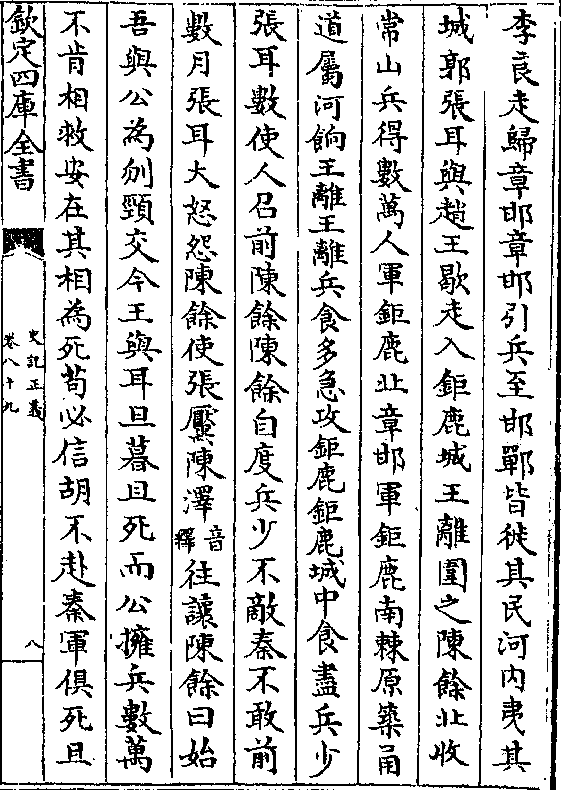 李良走歸章邯章邯引兵至邯鄲皆徙其民河内夷其
城郭張耳與趙王歇走入鉅鹿城王離圍之陳餘北收
常山兵得數萬人軍鉅鹿北章邯軍鉅鹿南棘原築甬
道屬河餉王離王離兵食多急攻鉅鹿鉅鹿城中食盡兵少
張耳數使人召前陳餘陳餘自度兵少不敵秦不敢前
數月張耳大怒怨陳餘使張黶陳澤音釋往讓陳餘曰始
吾與公為刎頸交今王與耳旦暮且死而公擁兵數萬
不肯相救安在其相為死苟必信胡不赴秦軍俱死且
欽定四庫全書
史記正義
卷八十九
八